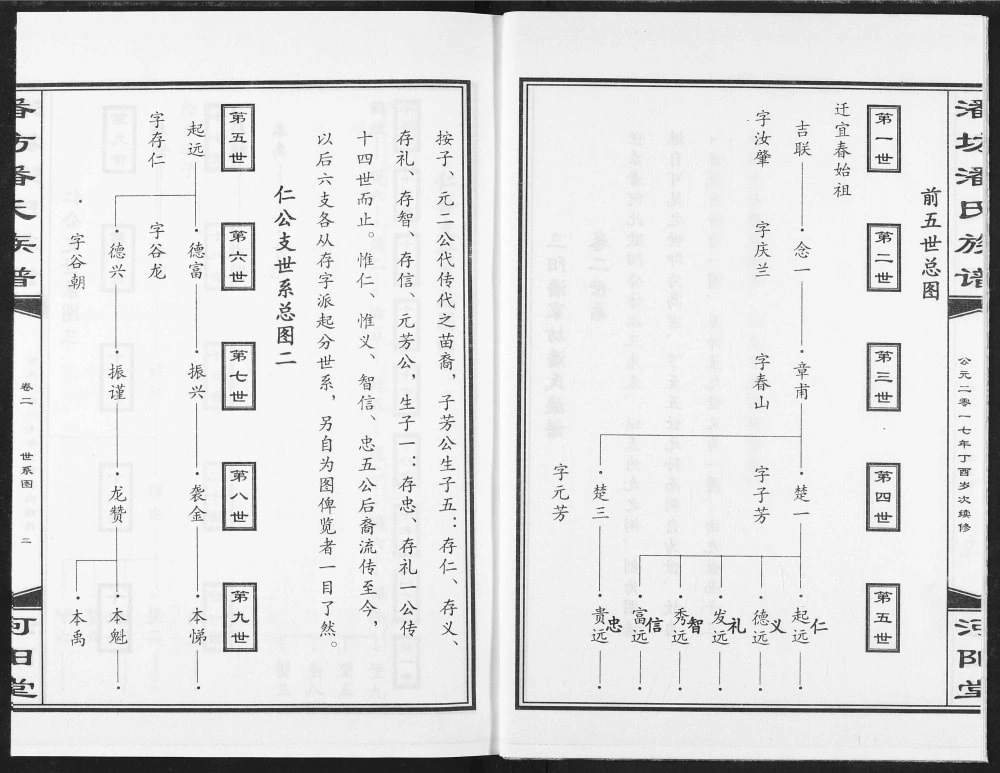 潘坊潘氏族谱
公元二零一七年丁酉岁次续修
河阳堂
前五世总图
第一世
第二世
第三世
第四世
第五世
迁宜春始祖
吉联
念一
章甫
楚一
起远
仁
字汝肇
字庆兰
字春山
字子芳
德远
义
发远
礼
秀远
智
富远
信
楚三
贵远
忠
字元芳
按子、元二公代传代之苗裔，子芳公生子五：存仁、存义、
存礼、存智、存信、元芳公，生子一：存忠、存礼一公传
十四世而止。惟仁、惟义、智信、忠五公后裔流传至今，
以后六支各从存字派起分世系，另自为图俾览者一目了然。
仁公支世系总图二
第五世
第六世
第七世
第八世
第九世
起远
德富
振兴
袭金
本悌
字存仁
字谷龙
德兴
振谨
龙赞
本魁
字谷朝
本禹
潘坊潘氏族谱
卷二
世系图
二
河阳堂